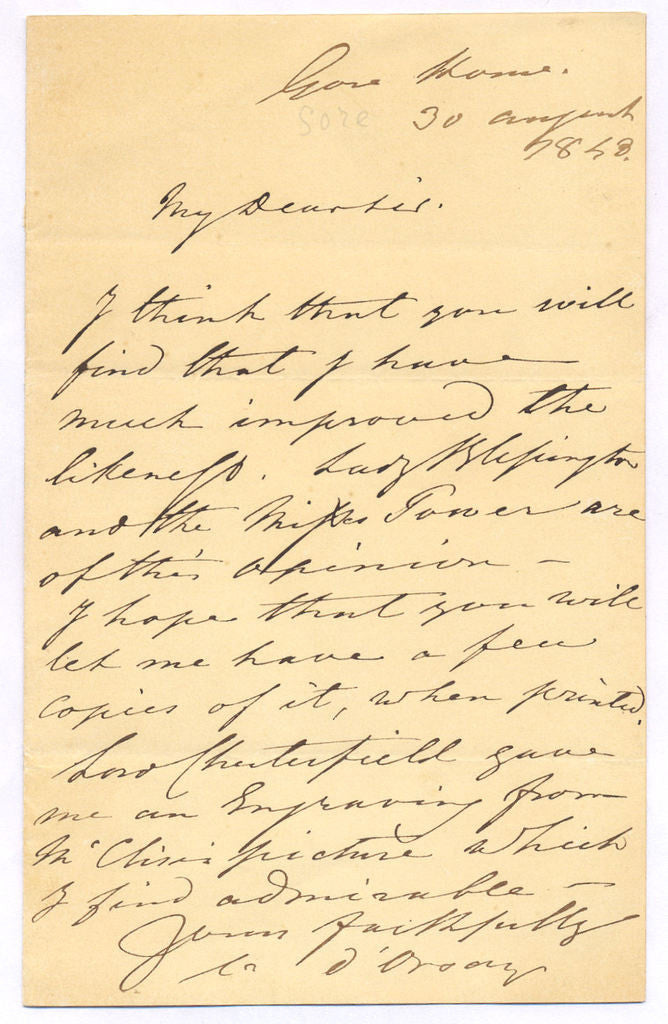 Gore House.
Gore
30 august
1843.
My Dear Sir.
I think that you will
find that I have
much improved the
likeness. Lady Blessington
and the Misses Power are
of this opinion –
I hope that you will
let me have a few
copies of it, when printed.
Lord Chesterfield gave
me an Engraving from
picture which
I find admirable –
Yours faithfully
d'Orsay